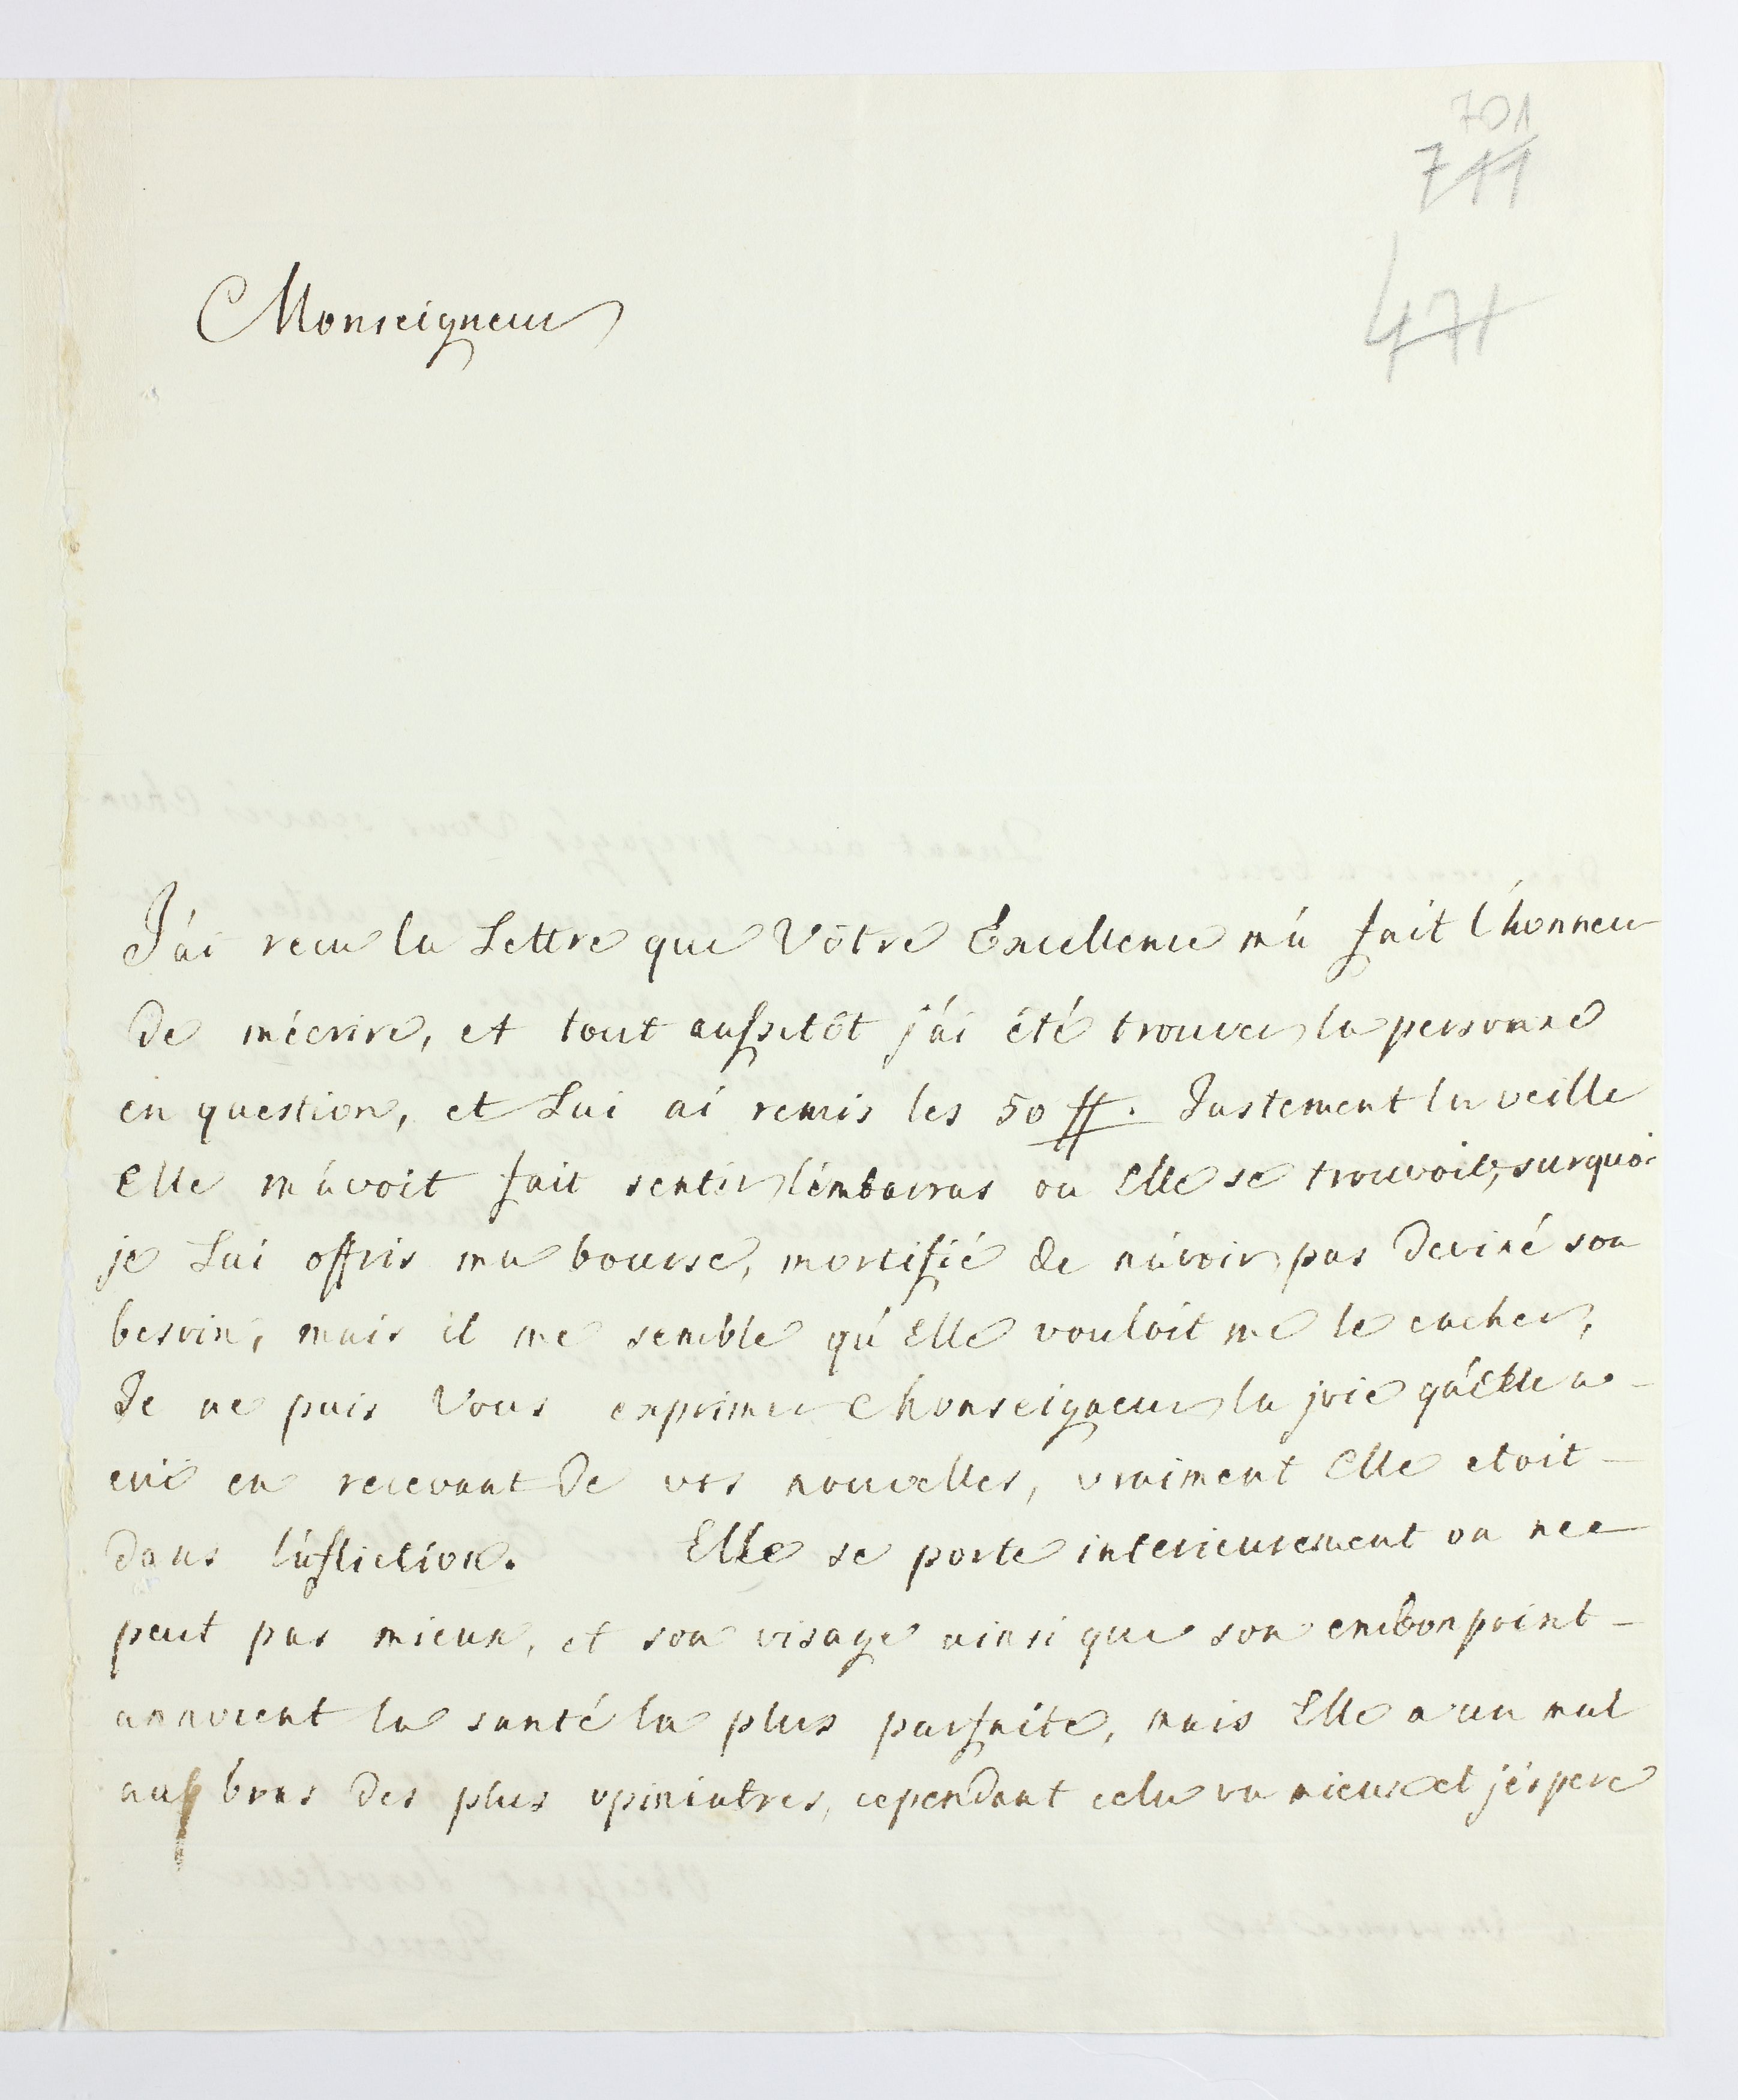 701
711
471
Monseigneur
J'ai recu la Lettre que Vôtre Excellence m'a fait l'honneur
de m'écrire, et tout aussitôt j'ai été trouver la personne
en question, et Lui ai remis les 50 ff. Justement la veille
Elle m'avoit fait sentir l'embarras ou Elle se trouvoit, surquoi
je Lui offris ma bourse, mortifié de n'avoir pas deviné son
besoin, mais il me semble qu'Elle vouloit me le cacher,
Je ne puis Vous exprimer Monseigneur la joie qu'Elle a
eue en recevant de vos nouvelles, vraiment Elle etoit
dans l'afliction. Elle se porte interieurement on ne
peut pas mieux, et son visage ainsi que son embonpoint
annoncent la santé la plus parfaite, mais Elle a un mal
au bras des plus opiniatres, cependant cela va mieux et j'éspere